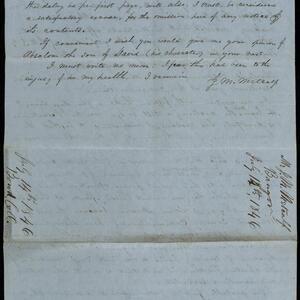 His delay as per first page, will also, I trust, be considered
a satisfactory excuse, for the omission here of any notice of
its contents.
If convenient I wish you would give me your opinion of
Absalom the son of David (his character) in your next.
I must write no more. I fear this has been to the
injury of my health. I remain
J. M. Metcalf
July 14th 1846
Mr. J. M. Metcalf
Bangor
July 14th 1846